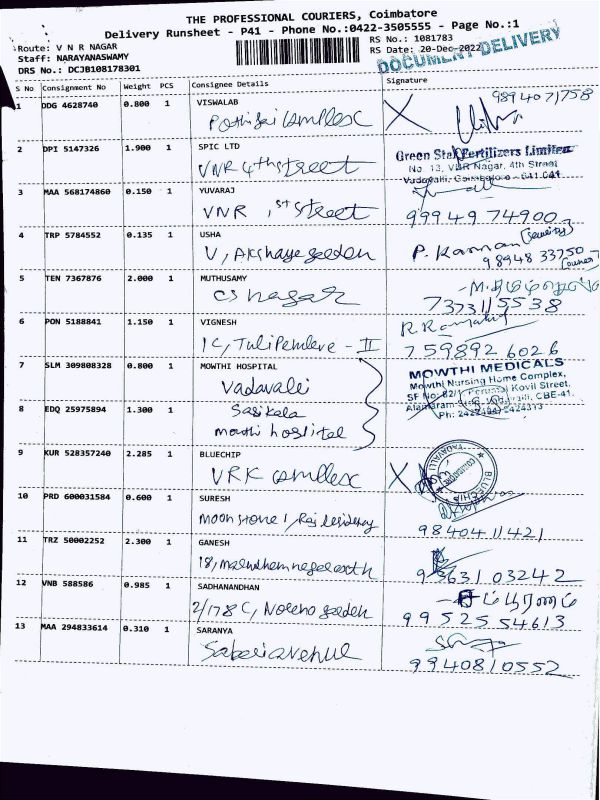 THE PROFESSIONAL COURIERS, Coimbatore
Delivery Runsheet - P41 - Phone No.:0422-3505555 - Page No.:1
Route: V N R NAGAR
RS No.: 1081783
Staff: NARAYANASWAMY
RS Date: 20-Dec-2022
DOCUMENT DELIVERY
DRS No.: DCJB108178301
S No Consignment No Weight PCS Consignee Details Signature
1 DDG 4628740 0.800 1 VISWALAB
9894071758
2 DPI 5147326 1.900 1 SPIC LTD
VNR 4th street
Green Star Fertilizers Limited
No. 13, VNR Nagar, 4th Street
Vadavalli, Coimbatore - 641 041
3 MAA 568174860 0.150 1 YUVARAJ
VNR 1st street
99949 74900
4 TRP 5784552 0.135 1 USHA
V, Akshaya
P. Kannan (Security)
98948 33750 (owner)
5 TEN 7367876 2.000 1 MUTHUSAMY
CS nagar
7373115538
6 PON 5188841 1.150 1 VIGNESH
1C,
- II
759892 6026
7 SLM 309808328 0.800 1 MOWTHI HOSPITAL
Vadavalli
MOWTHI MEDICALS
Mowthi Nursing Home Complex,
SF No: 82/1 Perumal Kovil Street,
CBE-41.
Ph: 2424313
8 EDQ 25975894 1.300 1 Sasikala
mowthi hospital
9 KUR 528357240 2.285 1 BLUECHIP
VRK complex
VADAVALLI
COIMBATORE
BLUECHIP
10 PRD 600031584 0.600 1 SURESH
moon stone 1, Raj residency
98404 11421
11 TRZ 50002252 2.300 1 GANESH
18,
93631 03242
12 VNB 588586 0.985 1 SADHANANDHAN
2/178 C,
99525 54613
13 MAA 294833614 0.310 1 SARANYA
Sabari avenue
9940810552